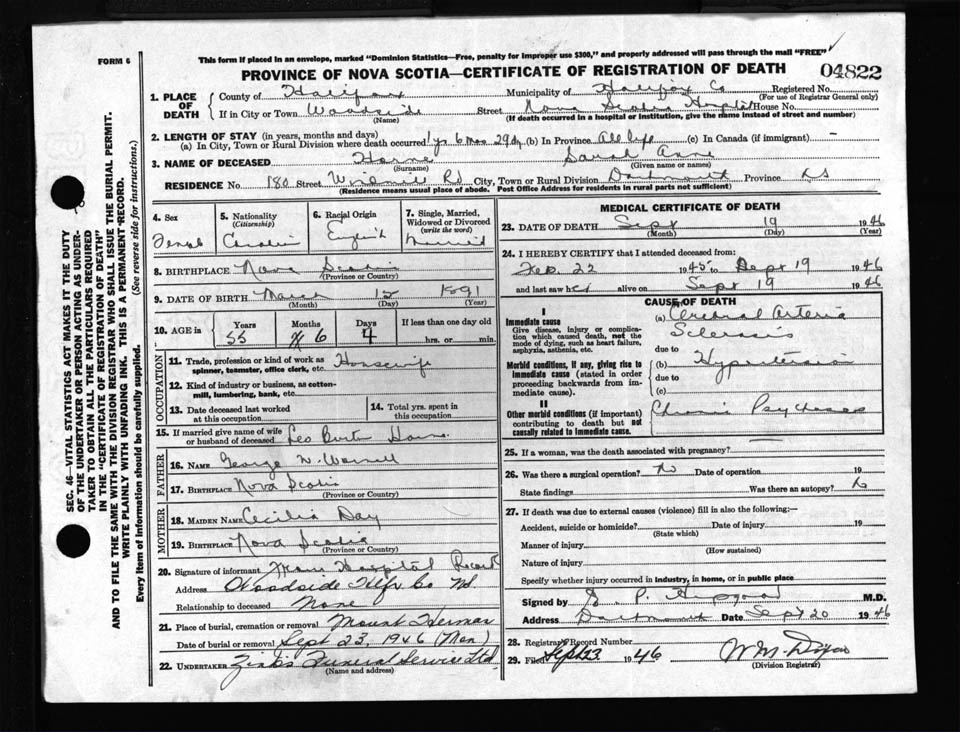 FORM 6
This form if placed in an envelope, marked "Dominion Statistics—Free, penalty for improper use $300," and properly addressed will pass through the mail "FREE"
PROVINCE OF NOVA SCOTIA—CERTIFICATE OF REGISTRATION OF DEATH 04822
1. PLACE OF DEATH { County of Halifax Municipality of Halifax Co Registered No.
(For use of Registrar General only)
If in City or Town Woodside Street Nova Scotia Hospital House No.
(Name) (If death occurred in a hospital or institution, give the name instead of street and number)
2. LENGTH OF STAY (in years, months and days)
(a) In City, Town or Rural Division where death occurred 1 yr 6 mos 29 dy (b) In Province All life (c) In Canada (if immigrant) —
3. NAME OF DECEASED Horne Sarah Ann
(Surname) (Given name or names)
RESIDENCE No. 180 Street Windmill Rd City, Town or Rural Division Dartmouth Province NS
(Residence means usual place of abode. Post Office Address for residents in rural parts not sufficient)
4. Sex
Female
5. Nationality
(Citizenship)
Canadian
6. Racial Origin
English
7. Single, Married, Widowed or Divorced
(write the word)
Married
8. BIRTHPLACE Nova Scotia
(Province or Country)
9. DATE OF BIRTH 15 1891
(Month) (Day) (Year)
10. AGE in { Years Months Days If less than one day old
55 6 4 hrs. or min.
OCCUPATION
11. Trade, profession or kind of work as spinner, teamster, office clerk, etc. Housewife
12. Kind of industry or business, as cotton-mill, lumbering, bank, etc.
13. Date deceased last worked at this occupation
14. Total yrs. spent in this occupation
15. If married give name of wife or husband of deceased Leo Horne
FATHER
16. NAME George W.
17. BIRTHPLACE Nova Scotia
(Province or Country)
MOTHER
18. MAIDEN NAME Cecilia Day
19. BIRTHPLACE Nova Scotia
(Province or Country)
20. Signature of informant From Hospital Record
Address Woodside Hfx Co
Relationship to deceased None
21. Place of burial, cremation or removal Mount Hermon
Date of burial or removal Sept 23, 1946 (Mon)
22. UNDERTAKER Zink's Funeral Service Ltd.
(Name and address)
MEDICAL CERTIFICATE OF DEATH
23. DATE OF DEATH Sept 19 1946
(Month) (Day) (Year)
24. I HEREBY CERTIFY that I attended deceased from:
Feb. 22 1945 to Sept 19 1946
and last saw her alive on Sept 19 1946
CAUSE OF DEATH
I
Immediate cause
Give disease, injury or complication which caused death, not the mode of dying, such as heart failure, asphyxia, asthenia, etc.
(a) Cerebral Arterio
Sclerosis
due to
Morbid conditions, if any, giving rise to immediate cause (stated in order proceeding backwards from immediate cause).
(b) Hypertension
due to
(c)
II
Other morbid conditions (if important) contributing to death but not causally related to immediate cause.
Chronic Psychosis
25. If a woman, was the death associated with pregnancy?
26. Was there a surgical operation? No Date of operation 19
State findings Was there an autopsy?
27. If death was due to external causes (violence) fill in also the following:—
Accident, suicide or homicide? Date of injury 19
(State which)
Manner of injury
(How sustained)
Nature of injury
Specify whether injury occurred in industry, in home, or in public place
Signed by M.D.
Address Dartmouth Date Sept 20 1946
28. Registrar's Record Number
29. Filed Sept 23 1946
(Division Registrar)
SEC. 46—VITAL STATISTICS ACT MAKES IT THE DUTY
OF THE UNDERTAKER OR PERSON ACTING AS UNDER-
TAKER TO OBTAIN ALL THE PARTICULARS REQUIRED
IN THE "CERTIFICATE OF REGISTRATION OF DEATH"
AND TO FILE THE SAME WITH THE DIVISION REGISTRAR WHO SHALL ISSUE THE BURIAL PERMIT.
WRITE PLAINLY WITH UNFADING INK. THIS IS A PERMANENT RECORD.
Every item of information should be carefully supplied. (See reverse side for instructions.)